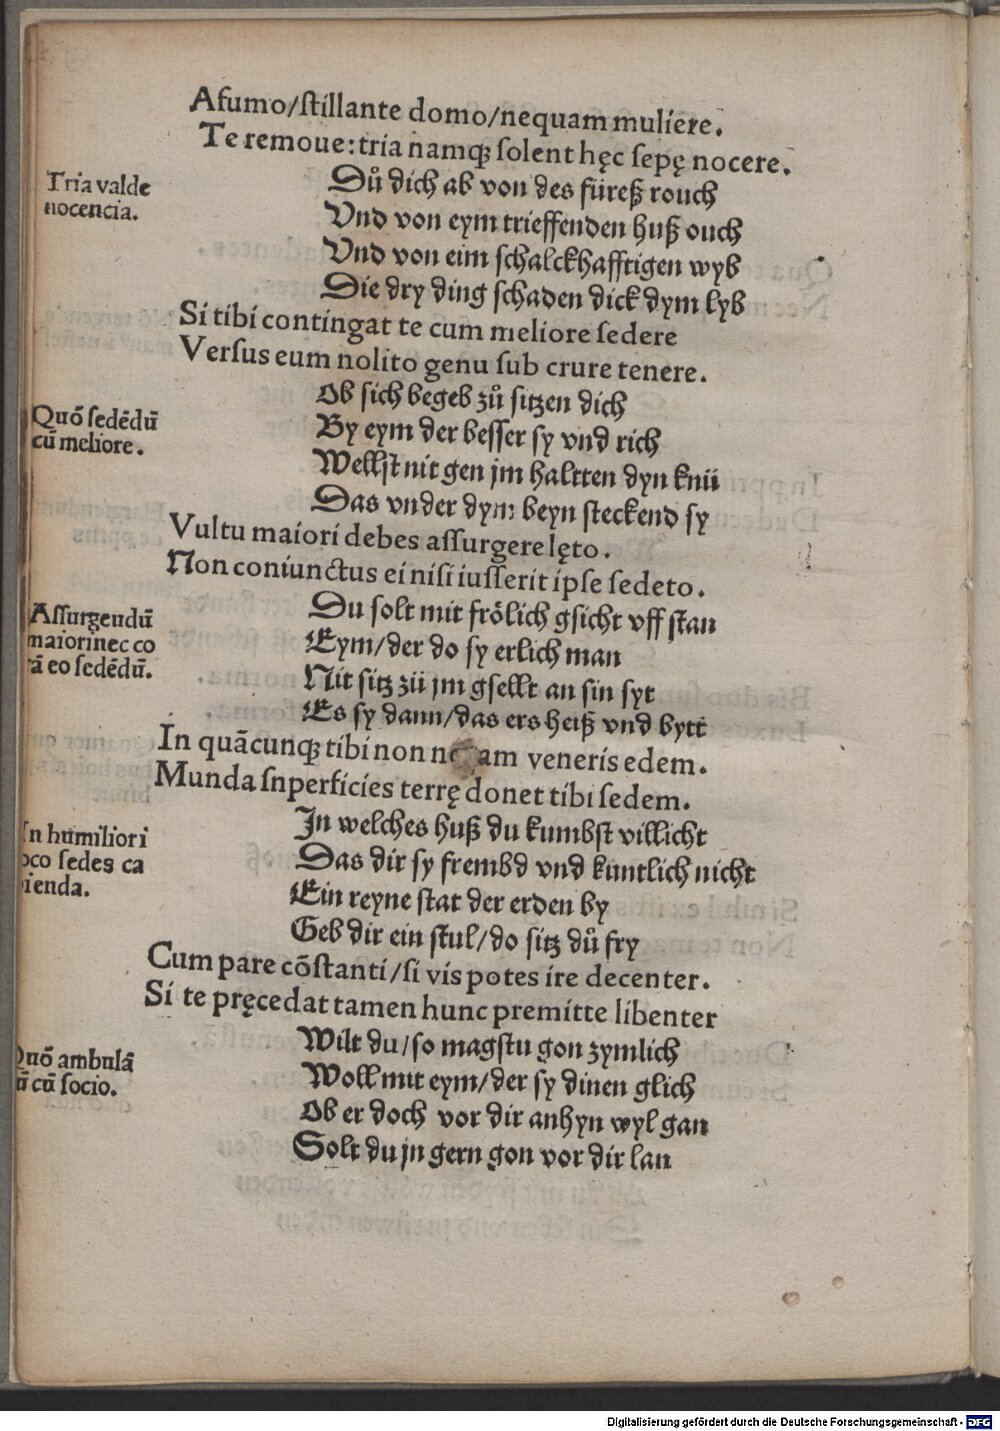 Afumo/stillante domo/nequam muliere.
Te remoue: tria namqꝫ solent hęc sepę nocere.
Tria valde
nocencia.
Dů dich ab von des füreß rouch
Vnd von eym trieffenden huß ouch
Vnd von eim schalckhafftigen wyb
Die dry ding schaden dick dym lyb
Si tibi contingat te cum meliore sedere
Versus eum nolito genu sub crure tenere.
Quō sedēdū
cū meliore.
Ob sich begeb zů sitzen dich
By eym der besser sy vnd rich
Wellst nit gen jm haltten dyn knü
Das vnder dym beyn steckend sy
Vultu maiori debes assurgere lęto.
Non coniunctus ei nisi iusserit ipse sedeto.
Assurgendū
maiorinec co
rā eo sedēdū.
Du solt mit frölich gsicht vff stan
Eym/der do sy erlich man
Nit sitz zü jm gsellt an sin syt
Es sy dann/das ers heiß vnd bytt
In quācunqꝫ tibi non no am veneris edem.
Munda snperficies terrę donet tibi sedem.
In humiliori
oco sedes ca
ienda.
In welches huß du kumbst villicht
Das dir sy frembd vnd kuntlich nicht
Ein reyne stat der erden by
Geb dir ein stul/do sitz dů fry
Cum pare cōstanti/si vis potes ire decenter.
Si te pręcedat tamen hunc premitte libenter
Quō ambulā
ū cū socio.
Wilt du/so magstu gon zymlich
Woll mit eym/der sy dinen glich
Ob er doch vor dir anhyn wyl gan
Solt du jn gern gon vor dir lan
Digitalisierung gefördert durch die Deutsche Forschungsgemeinschaft - DFG